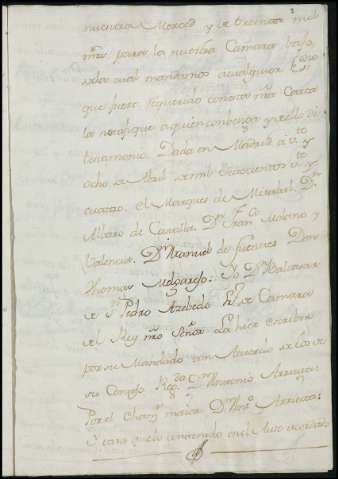 nuestra Merced y de treinta mil
mrs para la nuestra Camara bajo,
de la cual mandamos a cualquier Essno
que fuere requerido con esta nra Carta
la notifique a quien convenga y de ello de
testimonio. Dada en Madrid a v.te y
ocho de Abril de mil setecientos v.te y
cuatro. el Marques de Miraval. Dn
Alvaro de Castilla. Dn Franco Molano y
Valencia. Dn Manuel de fuentes. Don
Thomas Melgarejo. Yo Dn Baltasar
de Sn Pedro Azebedo Sno de Camara
del Rey nro Señor la hice escribir
por su Mandado con Acuerdo de los de
su Consejo. Regda Dn Antonio
Por el Chanzr maior. Dn Antto
Y para que lo contenido en el Auto